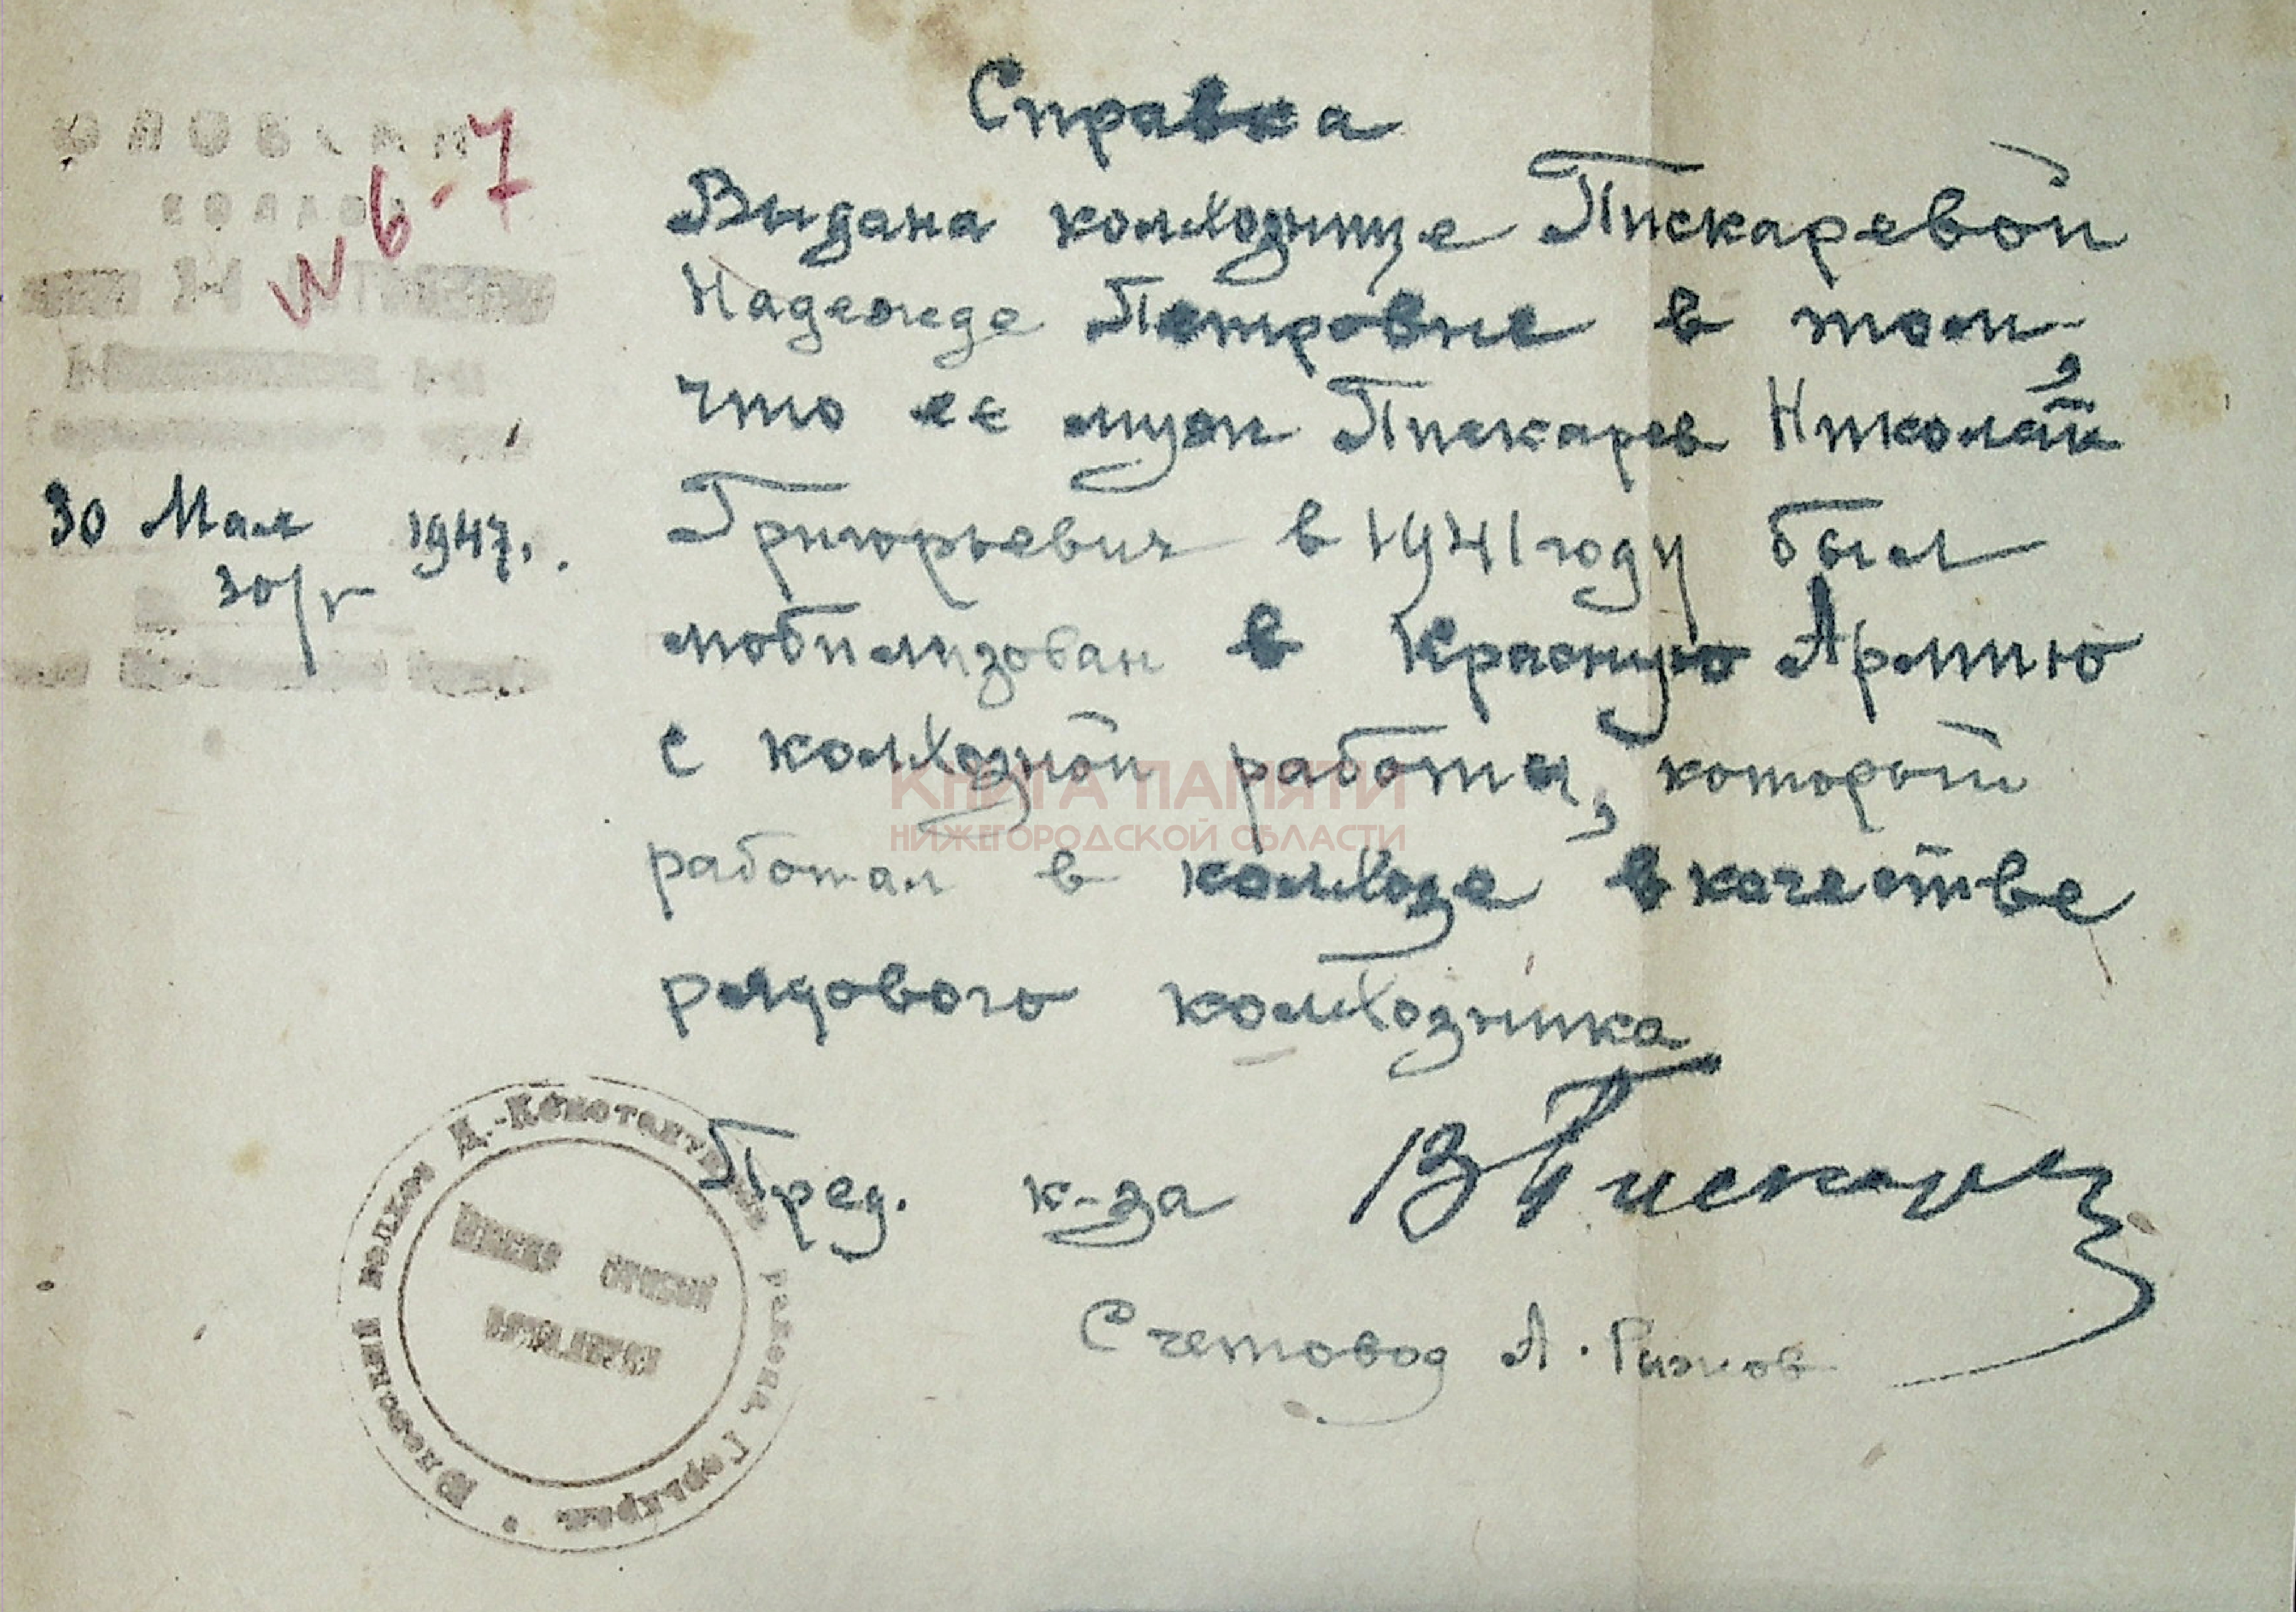 Справка
Выдана колхознице Пискаревой
Надежде Петровне в том,
что ее муж Пискарев Николай
30 Мая 1947.
Григорьевич в 1941 году был
мобилизован в Красную Армию
с колхозной работы, который
работал в колхозе в качестве
рядового колхозника
Пред. к-за В Пискарев
Счетовод А. Рыжов
№ 6-7
30/V
Д.-Константин района Горькрая
КНИГА ПАМЯТИ
НИЖЕГОРОДСКОЙ ОБЛАСТИ